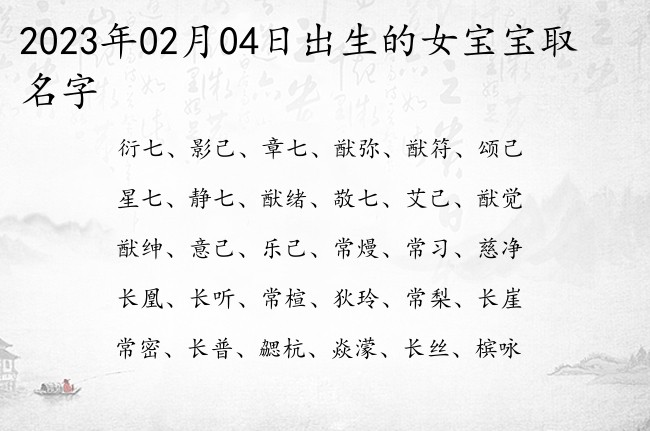 2023年02月04日出生的女宝宝取
名字
衍七、影己、章七、猷弥、猷符、颂己
星七、静七、猷绪、敬七、艾己、猷觉
猷绅、意己、乐己、常熳、常习、慈净
长凰、长听、常楦、狄玲、常梨、长崖
常密、长普、勰杭、焱濛、长丝、槟咏